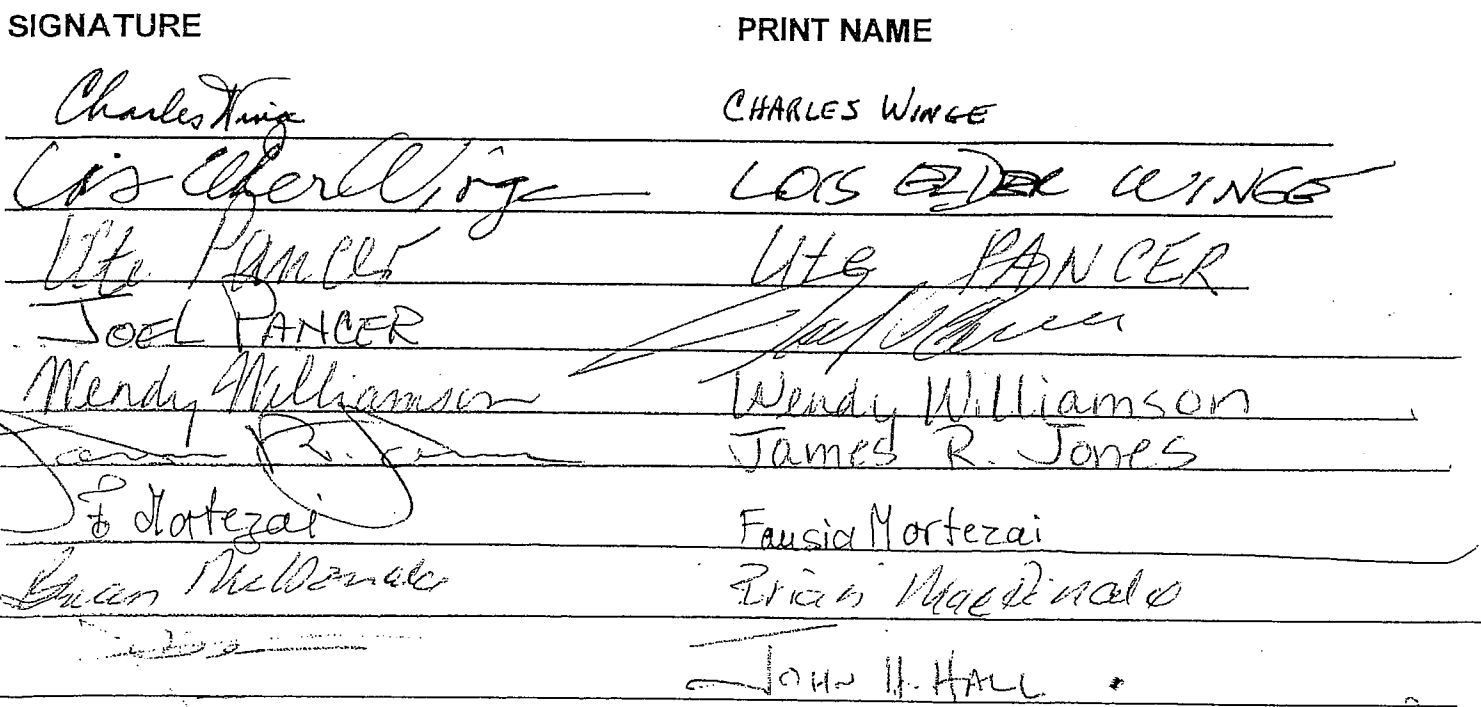 SIGNATURE PRINT NAME
Charles Winge CHARLES WINGE
Lois Elder Winge LOIS ELDER WINGE
Ute Pancer Ute PANCER
JOEL PANCER Joel Pancer
Wendy Williamson Wendy Williamson
James R. Jones James R. Jones
F Mortezai Fausia Mortezai
Brian MacDonald Brian MacDonald
JOHN H. HALL